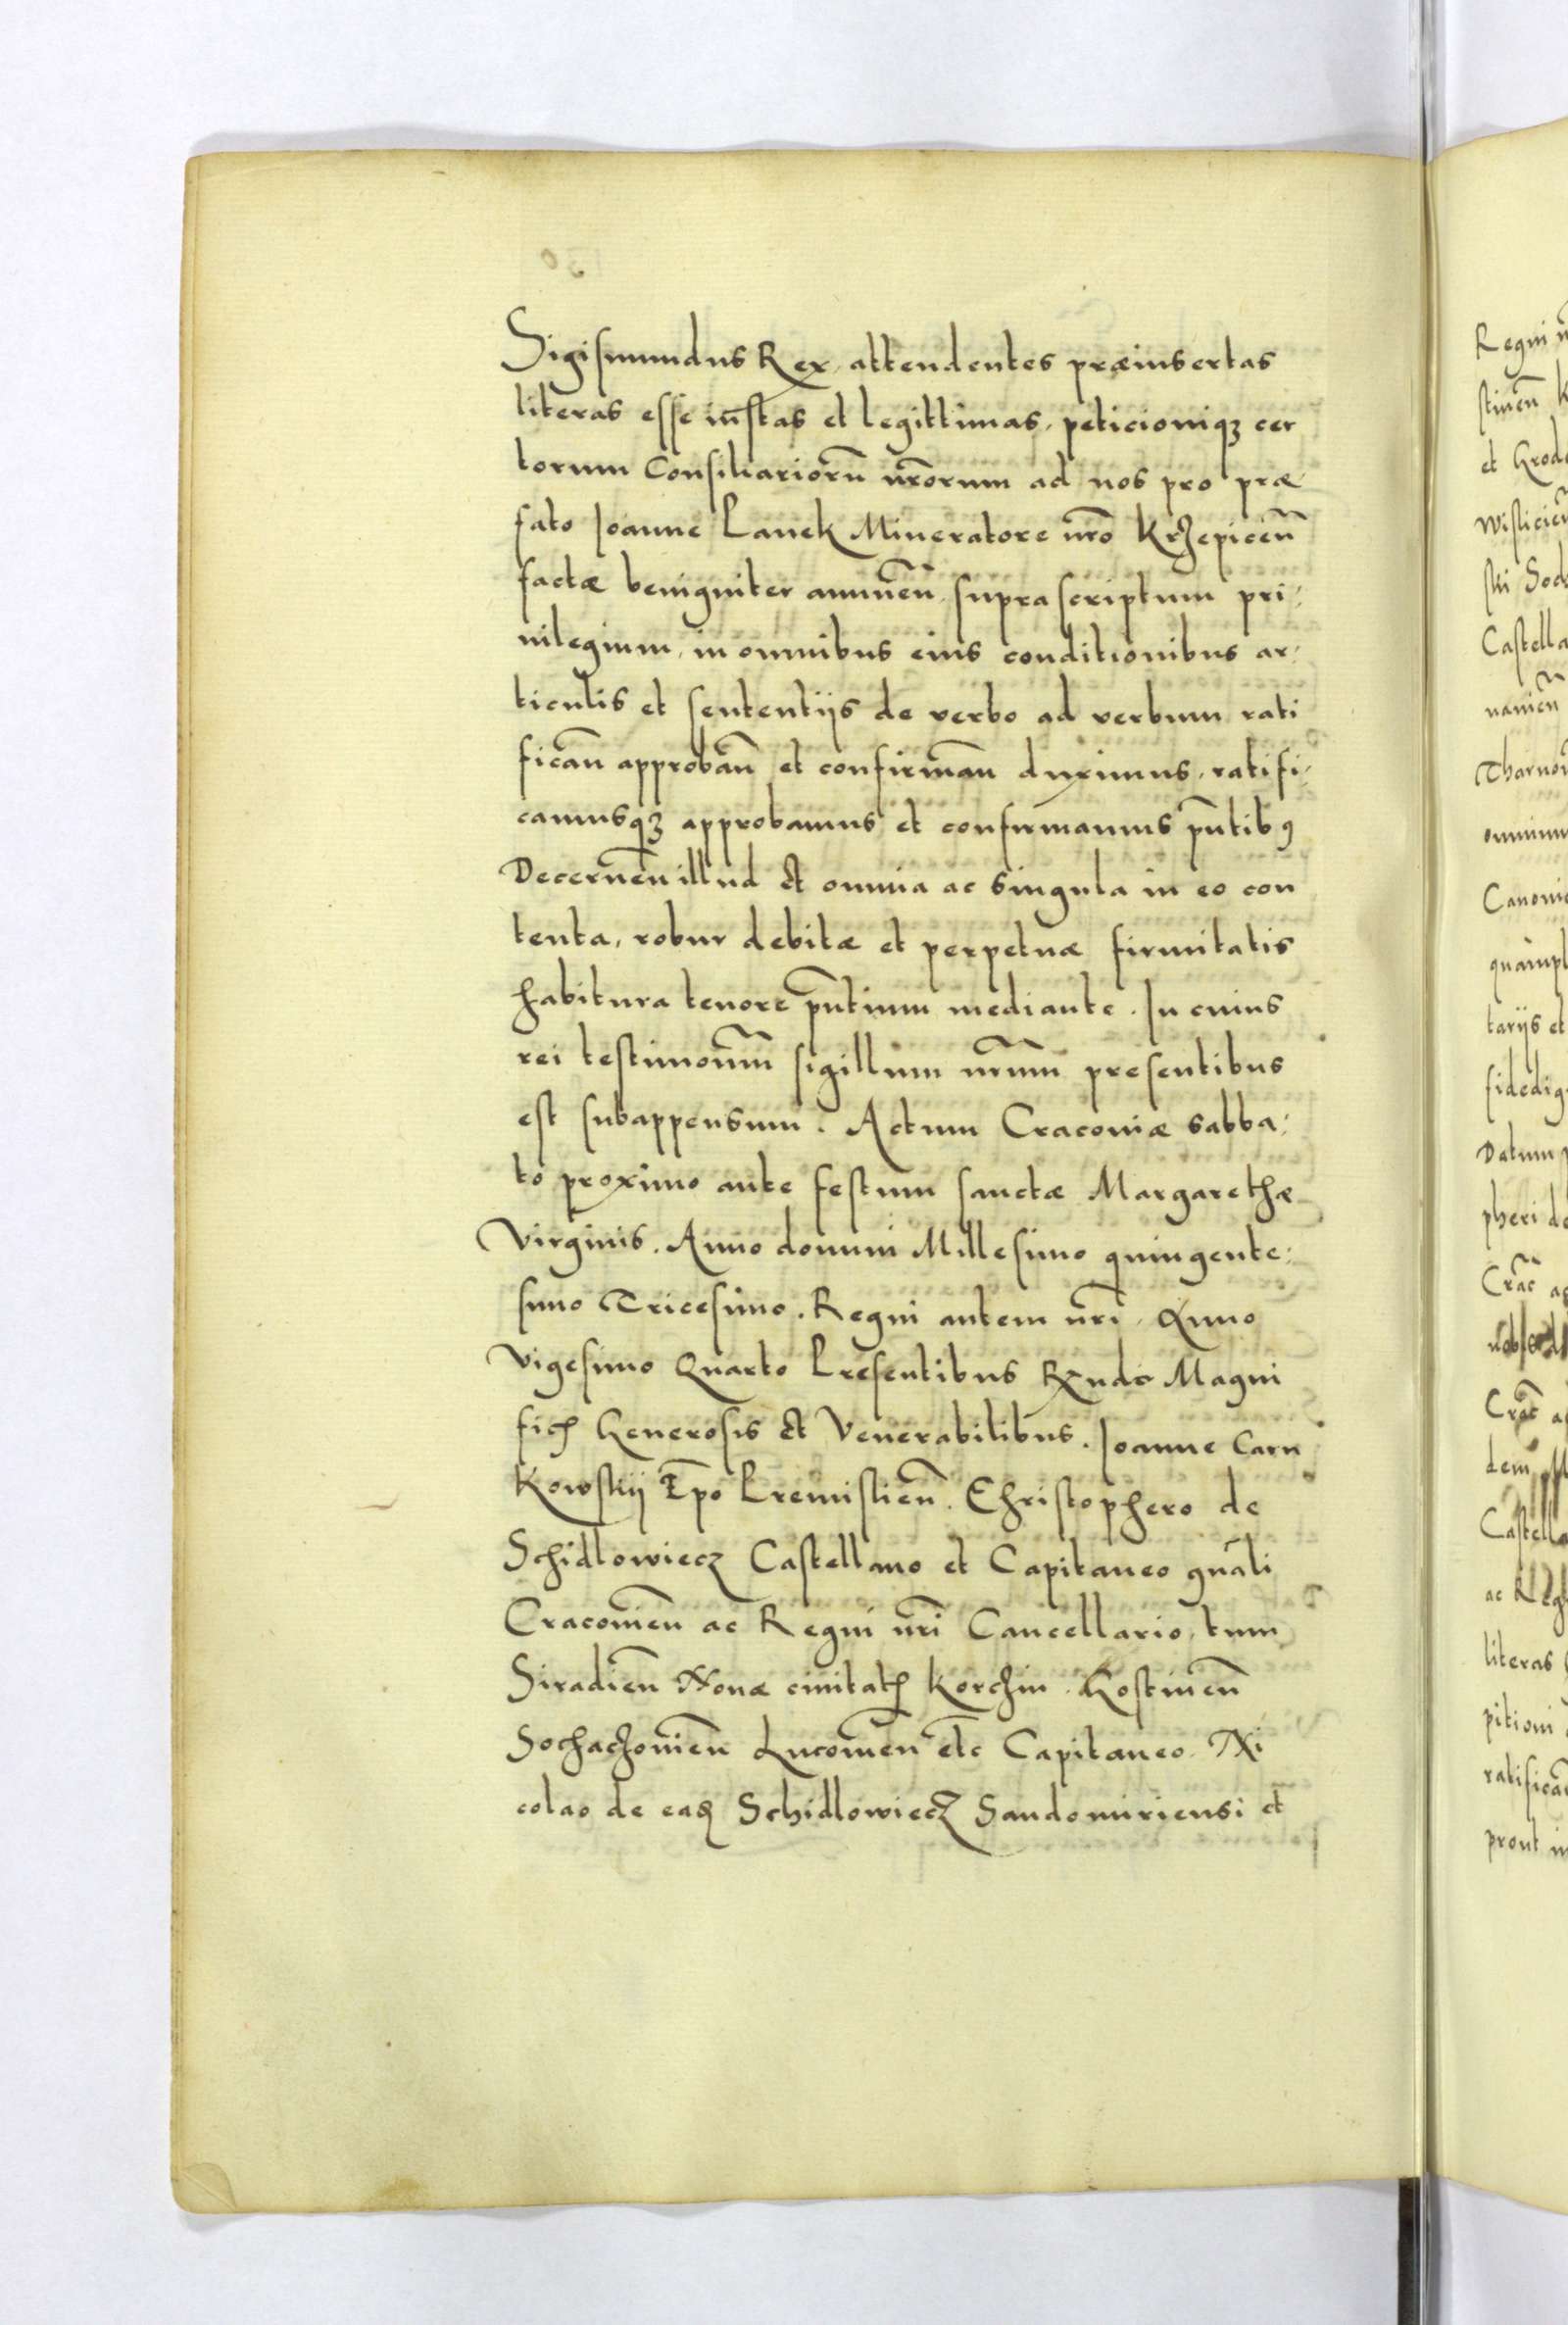 Sigismundus Rex, attendentes præinsertas
literas esse iustas et legittimas, peticioniqꝫ cer
torum Consiliariorū nrōrum ad nos pro præ-
fato Joanne Lanek Mineratore nrō Krzepiceñ
factæ benigniter annueñ, suprascriptum pri-
uilegium, in omnibus eius conditionibus ar-
ticulis et sententijs de verbo ad verbum rati
ficañ approbañ et confirmañ duximus, ratifi-
camusqꝫ approbamus et confirmamus pn̄tibꝰ
Decerneñ illud et omnia ac singula in eo con
tenta, robur debitæ et perpetuæ firmitatis
habitura tenore pn̄tium mediante. In cuius
rei testimoniū sigillum nrūm presentibus
est subappensum. Actum Cracoviæ sabba-
to proximo ante festum sanctæ Margarethæ
Virginis. Anno domini Millesimo quingente-
simo Tricesimo. Regni autem nrī, Anno
Vigesimo Quarto Presentibus Rxndo Magni
ficꝭ Generosis et Venerabilibus. Joanne Carn
kowskij Ep̄o Premislień. Christophero de
Schidlowiecz Castellano et Capitaneo gn̄ali
Cracovień ac Regni nrī Cancellario, tum
Siradień Novæ civitatꝭ Korchin, Gostineñ
Sochachovień Lucovień etc̄ Capitaneo. Ni
colao de eaꝫ Schidlowiecz Sandomiriensi et
Regni
stineñ
et Grod
Wisliceñ
ski Soch
Castella
naviēn
Tharno
omnium
Canonic
quāmpl
tarijs et
fidedig
Datum
pheri de
Crāc
Crāc
dem
Castella
literas
pitioni
ratificā
prout in